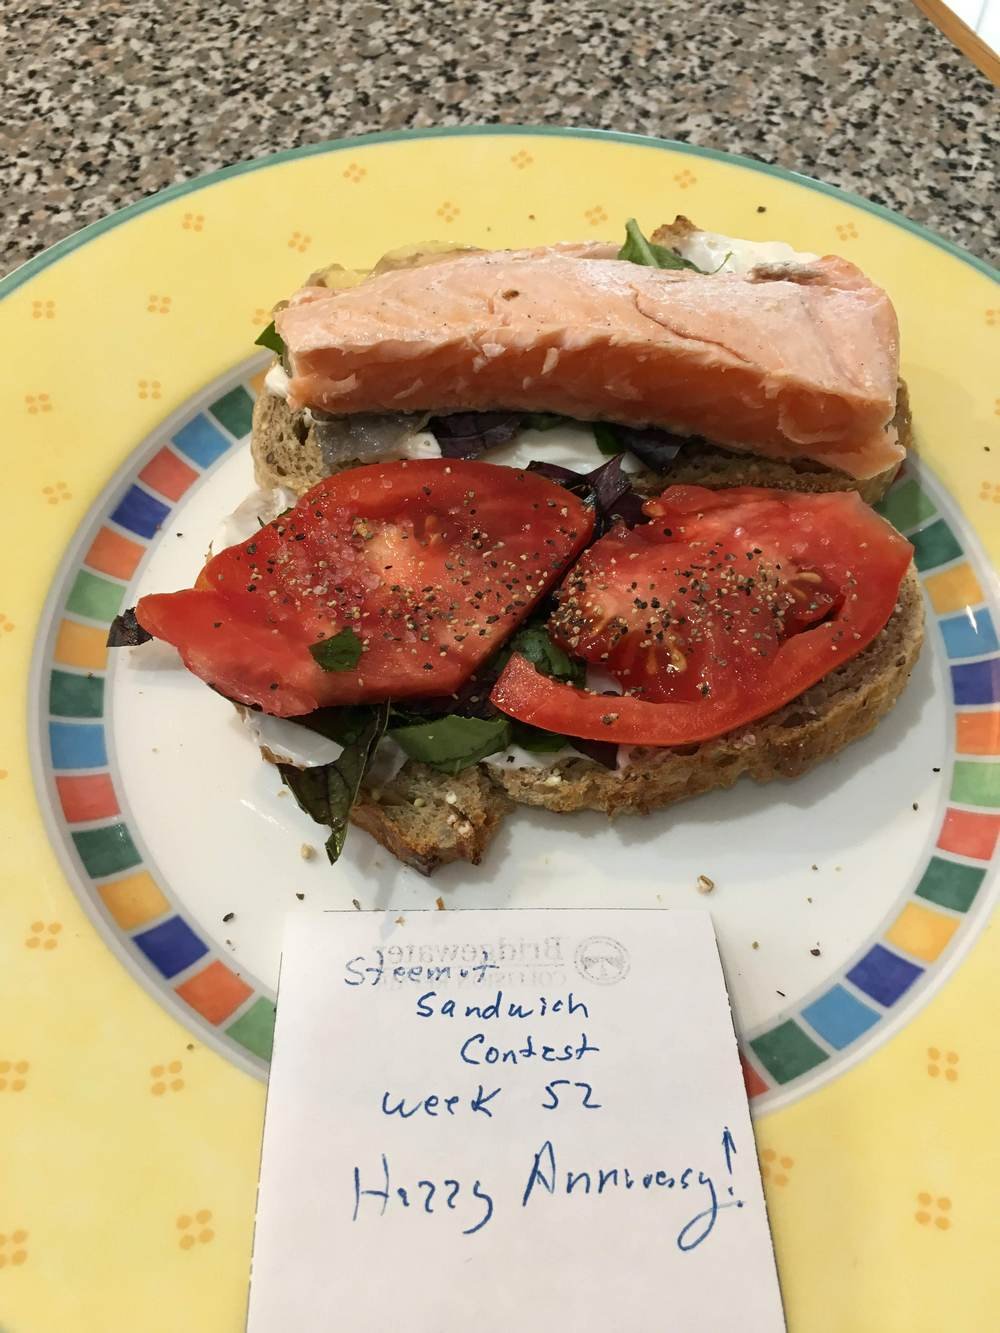 Bridgewater
COLLISION
Steemit
Sandwich
Contest
week 52
Happy Anniversary!